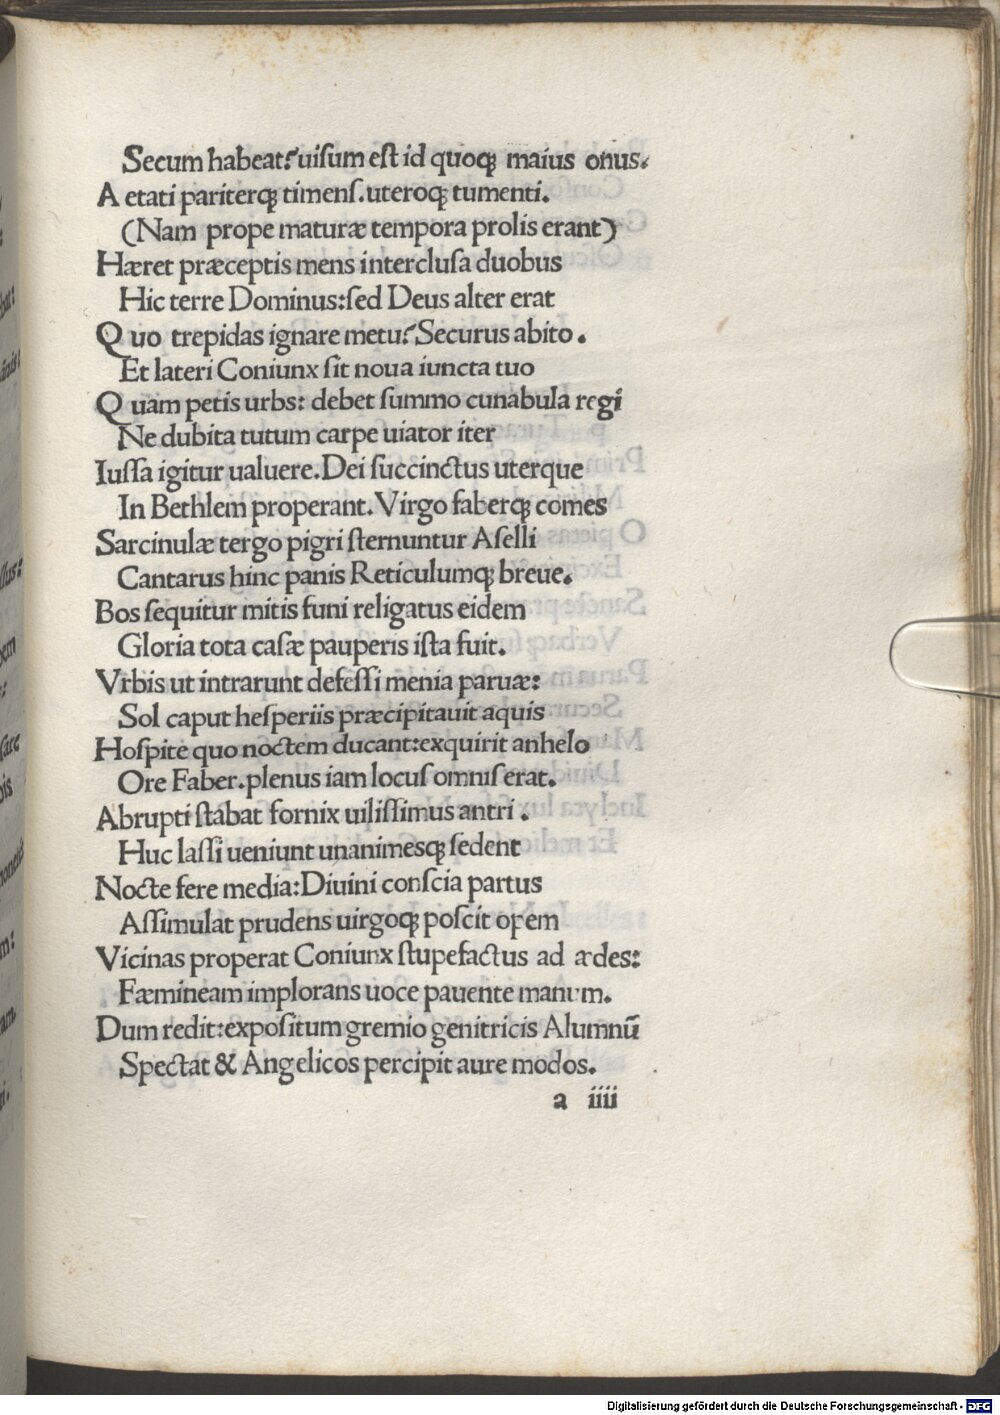 Secum habeat? uiſum eſt id quoqꝫ maius onus.
A etati pariterqꝫ timenſ. uteroqꝫ tumenti.
(Nam prope maturæ tempora prolis erant)
Hæret præceptis mens intercluſa duobus
Hic terre Dominus: ſed Deus alter erat
Q uo trepidas ignare metu? Securus abito.
Et lateri Coniunx ſit noua iuncta tuo
Q uam petis urbs: debet ſummo cunabula regi
Ne dubita tutum carpe uiator iter
Iuſſa igitur ualuere. Dei ſuccinctus uterque
In Bethlem properant. Virgo faberqꝫ comes
Sarcinulæ tergo pigri ſternuntur Aſelli
Cantarus hinc panis Reticulumqꝫ breue.
Bos ſequitur mitis funi religatus eidem
Gloria tota caſæ pauperis iſta fuit.
Vrbis ut intrarunt defeſſi menia paruæ:
Sol caput heſperiis præcipitauit aquis
Hoſpite quo noctem ducant: exquirit anhelo
Ore Faber. plenus iam locuſ omniſ erat.
Abrupti ſtabat fornix uiliſſimus antri.
Huc laſſi ueniunt unanimesqꝫ ſedent
Nocte fere media: Diuini conſcia partus
Aſſimulat prudens uirgoqꝫ poſcit opem
Vicinas properat Coniunx ſtupefactus ad ædes:
Fæmineam implorans uoce pauente manum.
Dum redit: expoſitum gremio genitricis Alumnū
Spectat & Angelicos percipit aure modos.
a iiii
Digitalisierung gefördert durch die Deutsche Forschungsgemeinschaft - DFG